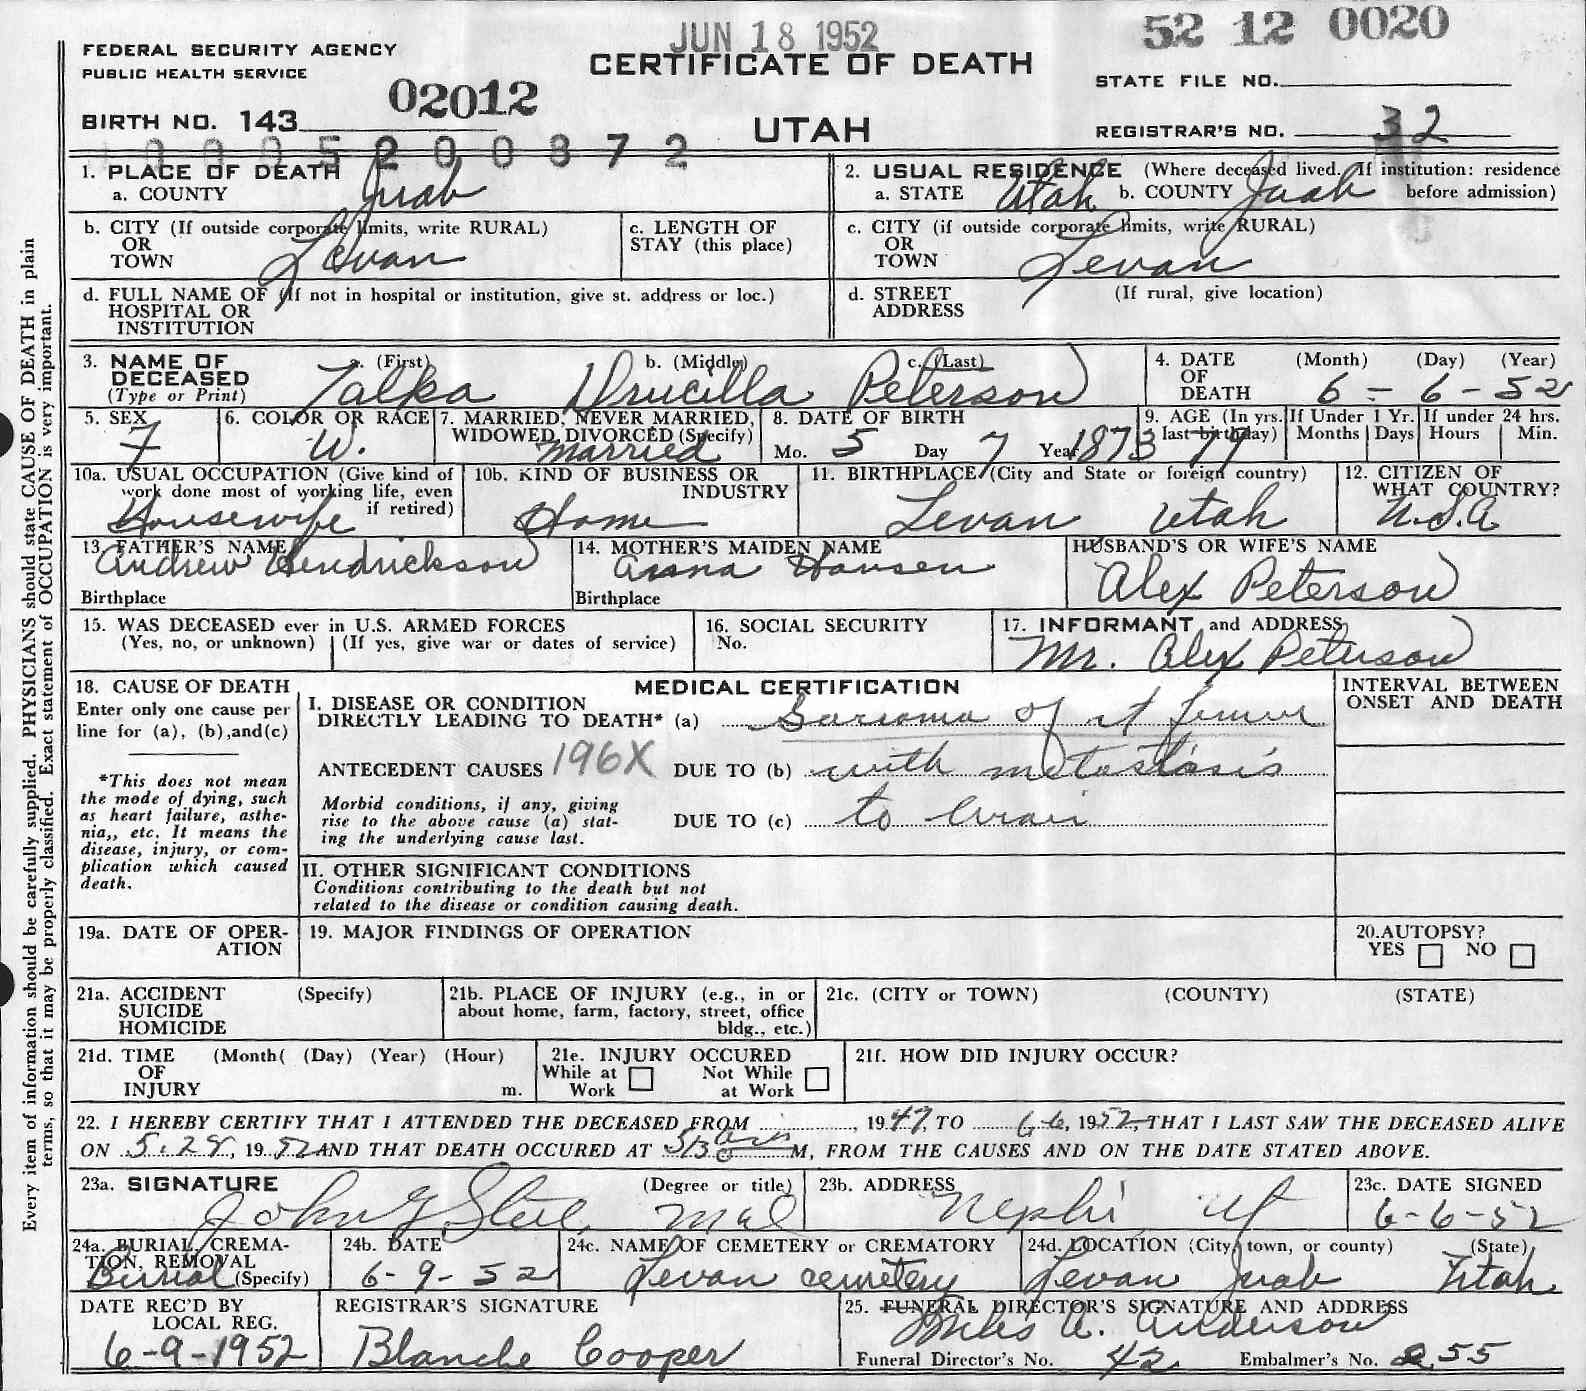 JUN 18 1952
52 12 0020
FEDERAL SECURITY AGENCY
PUBLIC HEALTH SERVICE
CERTIFICATE OF DEATH
STATE FILE NO.
02012
BIRTH NO. 143
UTAH
REGISTRAR'S NO. 32
1. PLACE OF DEATH
a. COUNTY Juab
2. USUAL RESIDENCE (Where deceased lived. If institution: residence
a. STATE Utah b. COUNTY Juab before admission)
b. CITY (If outside corporate limits, write RURAL)
OR
TOWN Levan
c. LENGTH OF
STAY (this place)
c. CITY (if outside corporate limits, write RURAL)
OR
TOWN Levan
d. FULL NAME OF (If not in hospital or institution, give st. address or loc.)
HOSPITAL OR
INSTITUTION
d. STREET (If rural, give location)
ADDRESS
3. NAME OF a. (First) b. (Middle) c. (Last)
DECEASED
(Type or Print) Drucilla Peterson
4. DATE (Month) (Day) (Year)
OF
DEATH 6 - 6 - 52
5. SEX
F
6. COLOR OR RACE
W.
7. MARRIED, NEVER MARRIED,
WIDOWED, DIVORCED (Specify)
Married
8. DATE OF BIRTH
Mo. 5 Day 7 Year 1873
9. AGE (In yrs.
last birthday)
79
If Under 1 Yr.
Months Days
If under 24 hrs.
Hours Min.
10a. USUAL OCCUPATION (Give kind of
work done most of working life, even
if retired)
Housewife
10b. KIND OF BUSINESS OR
INDUSTRY
Home
11. BIRTHPLACE (City and State or foreign country)
Levan Utah
12. CITIZEN OF
WHAT COUNTRY?
U.S.A
13. FATHER'S NAME
Andrew Hendrickson
Birthplace
14. MOTHER'S MAIDEN NAME
Anna Hansen
Birthplace
HUSBAND'S OR WIFE'S NAME
Alex Peterson
15. WAS DECEASED ever in U.S. ARMED FORCES
(Yes, no, or unknown) (If yes, give war or dates of service)
16. SOCIAL SECURITY
No.
17. INFORMANT and ADDRESS
Mr. Alex Peterson
18. CAUSE OF DEATH
Enter only one cause per
line for (a), (b),and(c)
*This does not mean
the mode of dying, such
as heart failure, asthe-
nia,, etc. It means the
disease, injury, or com-
plication which caused
death.
MEDICAL CERTIFICATION
I. DISEASE OR CONDITION
DIRECTLY LEADING TO DEATH* (a) Sarcoma of rt femur
ANTECEDENT CAUSES 196X DUE TO (b) with metastasis
Morbid conditions, if any, giving
rise to the above cause (a) stat-
ing the underlying cause last.
DUE TO (c) to
II. OTHER SIGNIFICANT CONDITIONS
Conditions contributing to the death but not
related to the disease or condition causing death.
INTERVAL BETWEEN
ONSET AND DEATH
19a. DATE OF OPER-
ATION
19. MAJOR FINDINGS OF OPERATION
20.AUTOPSY?
YES NO
21a. ACCIDENT (Specify)
SUICIDE
HOMICIDE
21b. PLACE OF INJURY (e.g., in or
about home, farm, factory, street, office
bldg., etc.)
21c. (CITY or TOWN) (COUNTY) (STATE)
21d. TIME (Month( (Day) (Year) (Hour)
OF
INJURY m.
21e. INJURY OCCURED
While at Not While
Work at Work
21f. HOW DID INJURY OCCUR?
22. I HEREBY CERTIFY THAT I ATTENDED THE DECEASED FROM , 1947, TO 6-6, 1952, THAT I LAST SAW THE DECEASED ALIVE
ON 5-28, 1952 AND THAT DEATH OCCURED AT M, FROM THE CAUSES AND ON THE DATE STATED ABOVE.
23a. SIGNATURE (Degree or title)
John G Steele
23b. ADDRESS
Nephi Ut
23c. DATE SIGNED
6-6-52
24a. BURIAL, CREMA-
TION, REMOVAL
Burial (Specify)
24b. DATE
6-9-52
24c. NAME OF CEMETERY or CREMATORY
Levan cemetery
24d. LOCATION (City, town, or county) (State)
Levan Juab Utah
DATE REC'D BY
LOCAL REG.
6-9-1952
REGISTRAR'S SIGNATURE
Blanche Cooper
25. FUNERAL DIRECTOR'S SIGNATURE AND ADDRESS
A. Anderson
Funeral Director's No. 42 Embalmer's No. 255
Every item of information should be carefully supplied. PHYSICIANS should state CAUSE OF DEATH in plain
terms, so that it may be properly classified. Exact statement of OCCUPATION is very important.